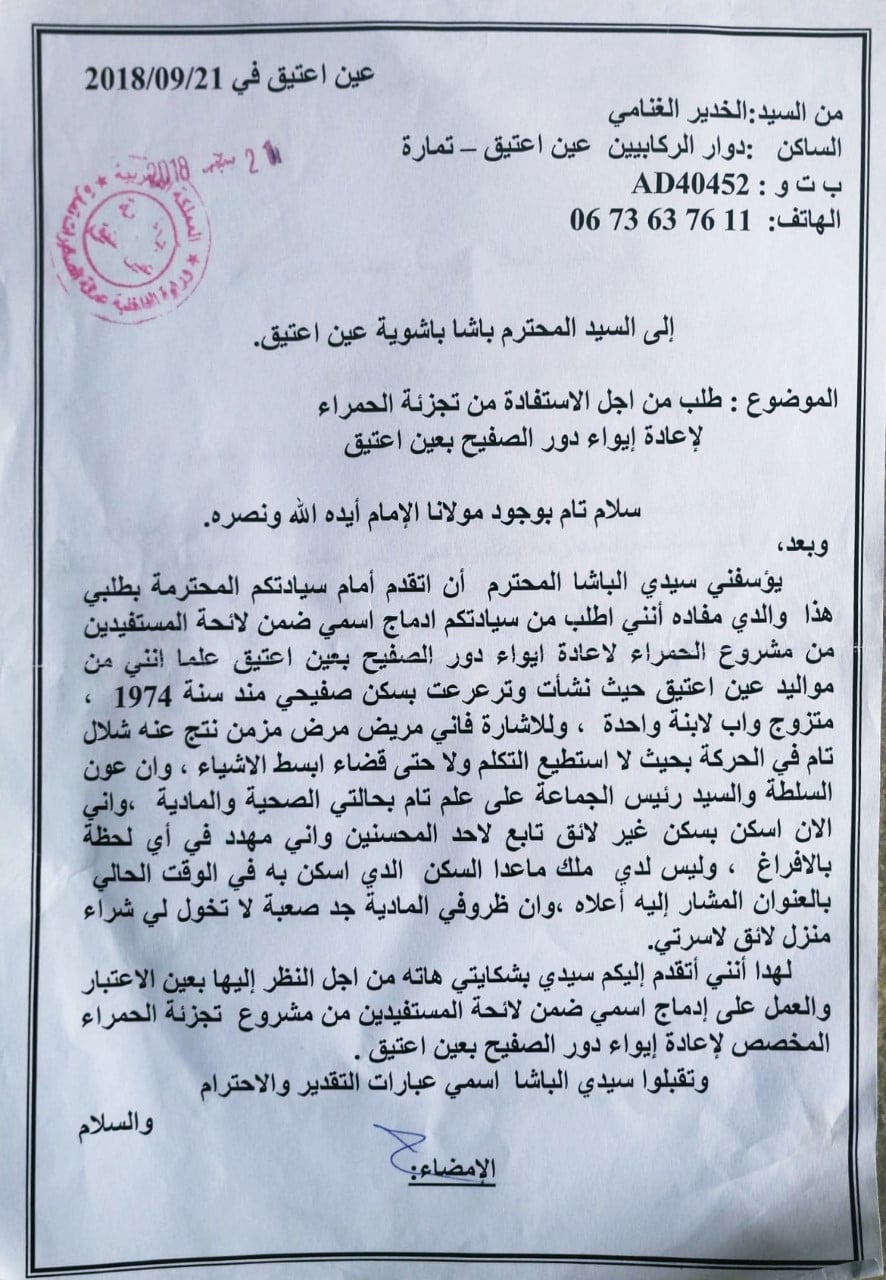 عين اعتيق في 2018/09/21
من السيد:الخدير الغنامي
الساكن :دوار الركابيين عين اعتيق – تمارة
ب ت و : AD40452
الهاتف: 06 73 63 76 11
21 سبتمبر 2018
المملكة المغربية
وزارة الداخلية عمالة الصخيرات تمارة
إلى السيد المحترم باشا باشوية عين اعتيق.
الموضوع : طلب من اجل الاستفادة من تجزئة الحمراء
لإعادة إيواء دور الصفيح بعين اعتيق
سلام تام بوجود مولانا الإمام أيده الله ونصره.
وبعد،
يؤسفني سيدي الباشا المحترم أن اتقدم أمام سيادتكم المحترمة بطلبي
هذا والدي مفاده أنني اطلب من سيادتكم ادماج اسمي ضمن لائحة المستفيدين
من مشروع الحمراء لاعادة ايواء دور الصفيح بعين اعتيق علما انني من
مواليد عين اعتيق حيث نشأت وترعرعت بسكن صفيحي مند سنة 1974 ،
متزوج واب لابنة واحدة ، وللاشارة فاني مريض مرض مزمن نتج عنه شلال
تام في الحركة بحيث لا استطيع التكلم ولا حتى قضاء ابسط الاشياء ، وان عون
السلطة والسيد رئيس الجماعة على علم تام بحالتي الصحية والمادية ،واني
الان اسكن بسكن غير لائق تابع لاحد المحسنين واني مهدد في أي لحظة
بالافراغ ، وليس لدي ملك ماعدا السكن الدي اسكن به في الوقت الحالي
بالعنوان المشار إليه أعلاه ،وان ظروفي المادية جد صعبة لا تخول لي شراء
منزل لائق لاسرتي.
لهدا أنني أتقدم إليكم سيدي بشكايتي هاته من اجل النظر إليها بعين الاعتبار
والعمل على إدماج اسمي ضمن لائحة المستفيدين من مشروع تجزئة الحمراء
المخصص لإعادة إيواء دور الصفيح بعين اعتيق .
وتقبلوا سيدي الباشا اسمي عبارات التقدير والاحترام
والسلام
الإمضاء: